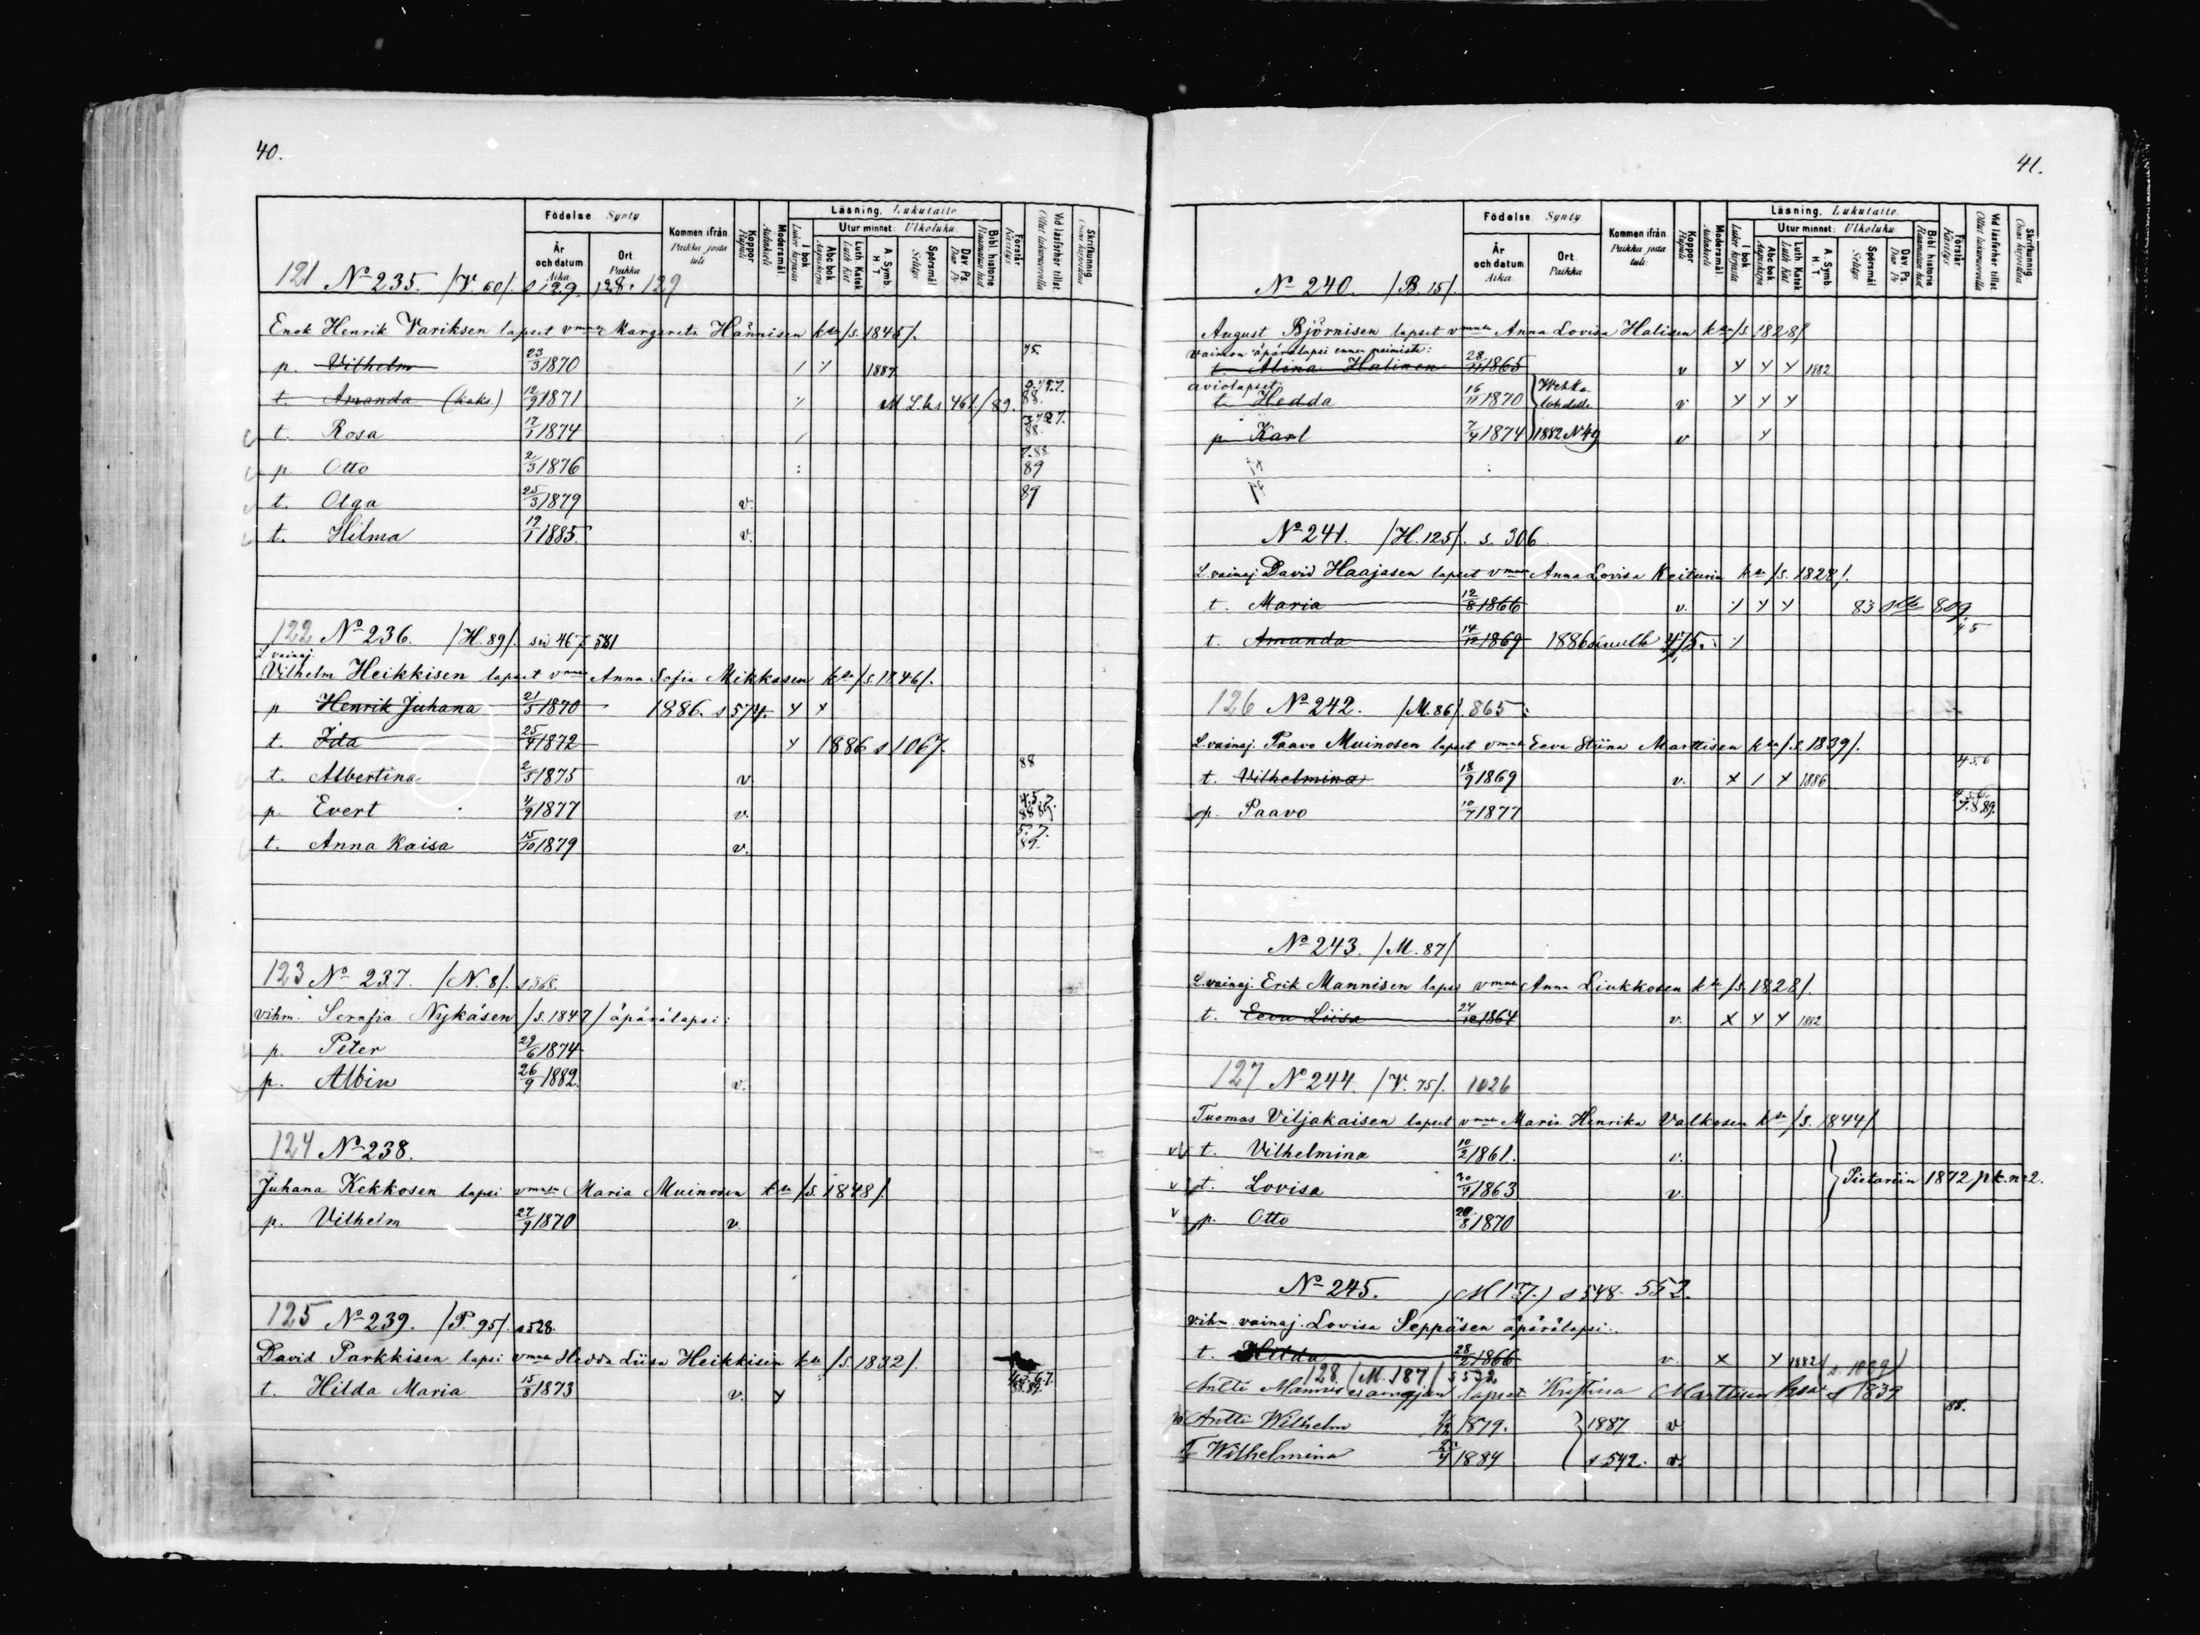 40.
Födelse Synty
Kommen ifrån Paikka josta tuli
Koppor Rupuli
Modersmål Äidinkieli
Läsning. Lukutaito
I bok Lukee kirjasta
Utur minnet: Ulkoluku
Abc bok Aapiskirja
Luth. Katek Luth Kat
A. Symb. H. T.
Spörsmål Selitys
Dav Ps. Dav Ps
Bibl historie
Förstår Käsitys
Vid läsförhör tillst. Ollut lukuvuorolla
Skrifkunnig
År och datum Aika
Ort Paikka
121 No 235. /V. 60/. s 129. 128. 129
Enok Henrik Variksen lapset vmnsa Margareta Hännisen kssa /s. 1845/.
p. Vilhelm 23/3 1870 1887 75.
t. Amanda (kaks.) 12/9 1871 M L.ks 461/89. 88.
t. Rosa 17/1 1874 88.
p Otto 2/3 1876 89
t. Olga 25/3 1879 v. 89
t. Hilma 19/1 1885. v.
122 No 236. /H. 89/. siv 467 581
L vainaj.
Vilhelm Heikkisen lapset vmnsa Anna Sofia Mikkosen kssa /s. 1846/.
p Henrik Juhana 21/5 1870 1886. s 574. x x
t. Ida 25/4 1872 x 1886 s 1067.
t. Albertina 2/5 1875 v 88
p. Evert 4/9 1877 v. 4.5.7. 88 89
t. Anna Kaisa 15/10 1879 v. 5.7. 89.
123 No 237. /N. 8/. s 368.
vihm. Serafia Nykäsen /s. 1847/ äpärälapsi:
p. Peter 29/6 1874
p. Albin 26/9 1882. v.
124 No 238.
Juhana Kekkosen lapsi vmnsa Maria Muinosen kssa /s. 1848/.
p. Vilhelm 27/9 1870 v.
125 No 239. /P. 95/. s 528.
David Parkkisen lapsi vmnsa Hedda Liisa Heikkisen kssa /s. 1832/.
t. Hilda Maria 15/8 1873 v. x 88.89.
41.
Födelse Synty
Kommen ifrån Paikka josta tuli
Koppor Rupuli
Modersmål Äidinkieli
Läsning. Lukutaito
I bok Lukee kirjasta
Utur minnet: Ulkoluku
Abc bok Aapiskirja
Luth Katek Luth Kat
A. Symb. H. T.
Spörsmål Selitys
Dav Ps. Dav Ps
Bibl historie
Förstår Käsitys
Vid läsförhör tillst. Ollut lukuvuorolla
Skrifkunnig
År och datum Aika
Ort. Paikka
No 240. /B. 15/.
August Björnisen lapset vmnsa Anna Lovisa Halisen kssa /s. 1828/
vaimon äpärälapsi ennen naimista:
t. Alina Halinen 28/11 1865 v x x x 1882
aviolapset:
t. Hedda 16/11 1870 v x x x
p Karl 7/4 1874 1882 No 49 v x
No 241. /H. 125/. s. 306
L. vainaj. David Haajasen lapset vmnsa Anna Lovisa Keiturin kssa /s. 1828/.
t. Maria 12/8 1866 v. x x x 83
t. Amanda 14/12 1869 1886 4 5
126 No 242. /M. 86/. 865
L. vainaj. Paavo Muinosen lapset vmnsa Eeva Stiina Marttisen kssa /s. 1839/.
t. Vilhelmina 18/9 1869 v. x / x 1886 4 5 6
p. Paavo 10/7 1877 4 5 6. 7.8.89.
No 243. /M. 87/
L. vainaj. Erik Mannisen lapsi vmnsa Anna Liukkosen kssa /s. 1828/.
t. Eeva Liisa 24/12 1864 v. x x x 1882
127 No 244. /V. 75/. 1026
Tuomas Viljakaisen lapset vmnsa Maria Henrika Valkosen kssa /s. 1844/
t. Vilhelmina 10/2 1861. v.
t. Lovisa 1863 v. Pietariin 1872 pk. no 2.
p. Otto 20/8 1870
No 245. (M 187.) s 548. 552.
vihm. vainaj. Lovisa Seppäsen äpärälapsi:
t. Hilda 28/2 1866 v. x x 1882
128 /M. 187/ s 552
Antti lapset Kristiina Marttisen kssa s 1839
88.
p Antti Wilhelm 1879. 1887 v
t Wilhelmina 1884 s 542. v.